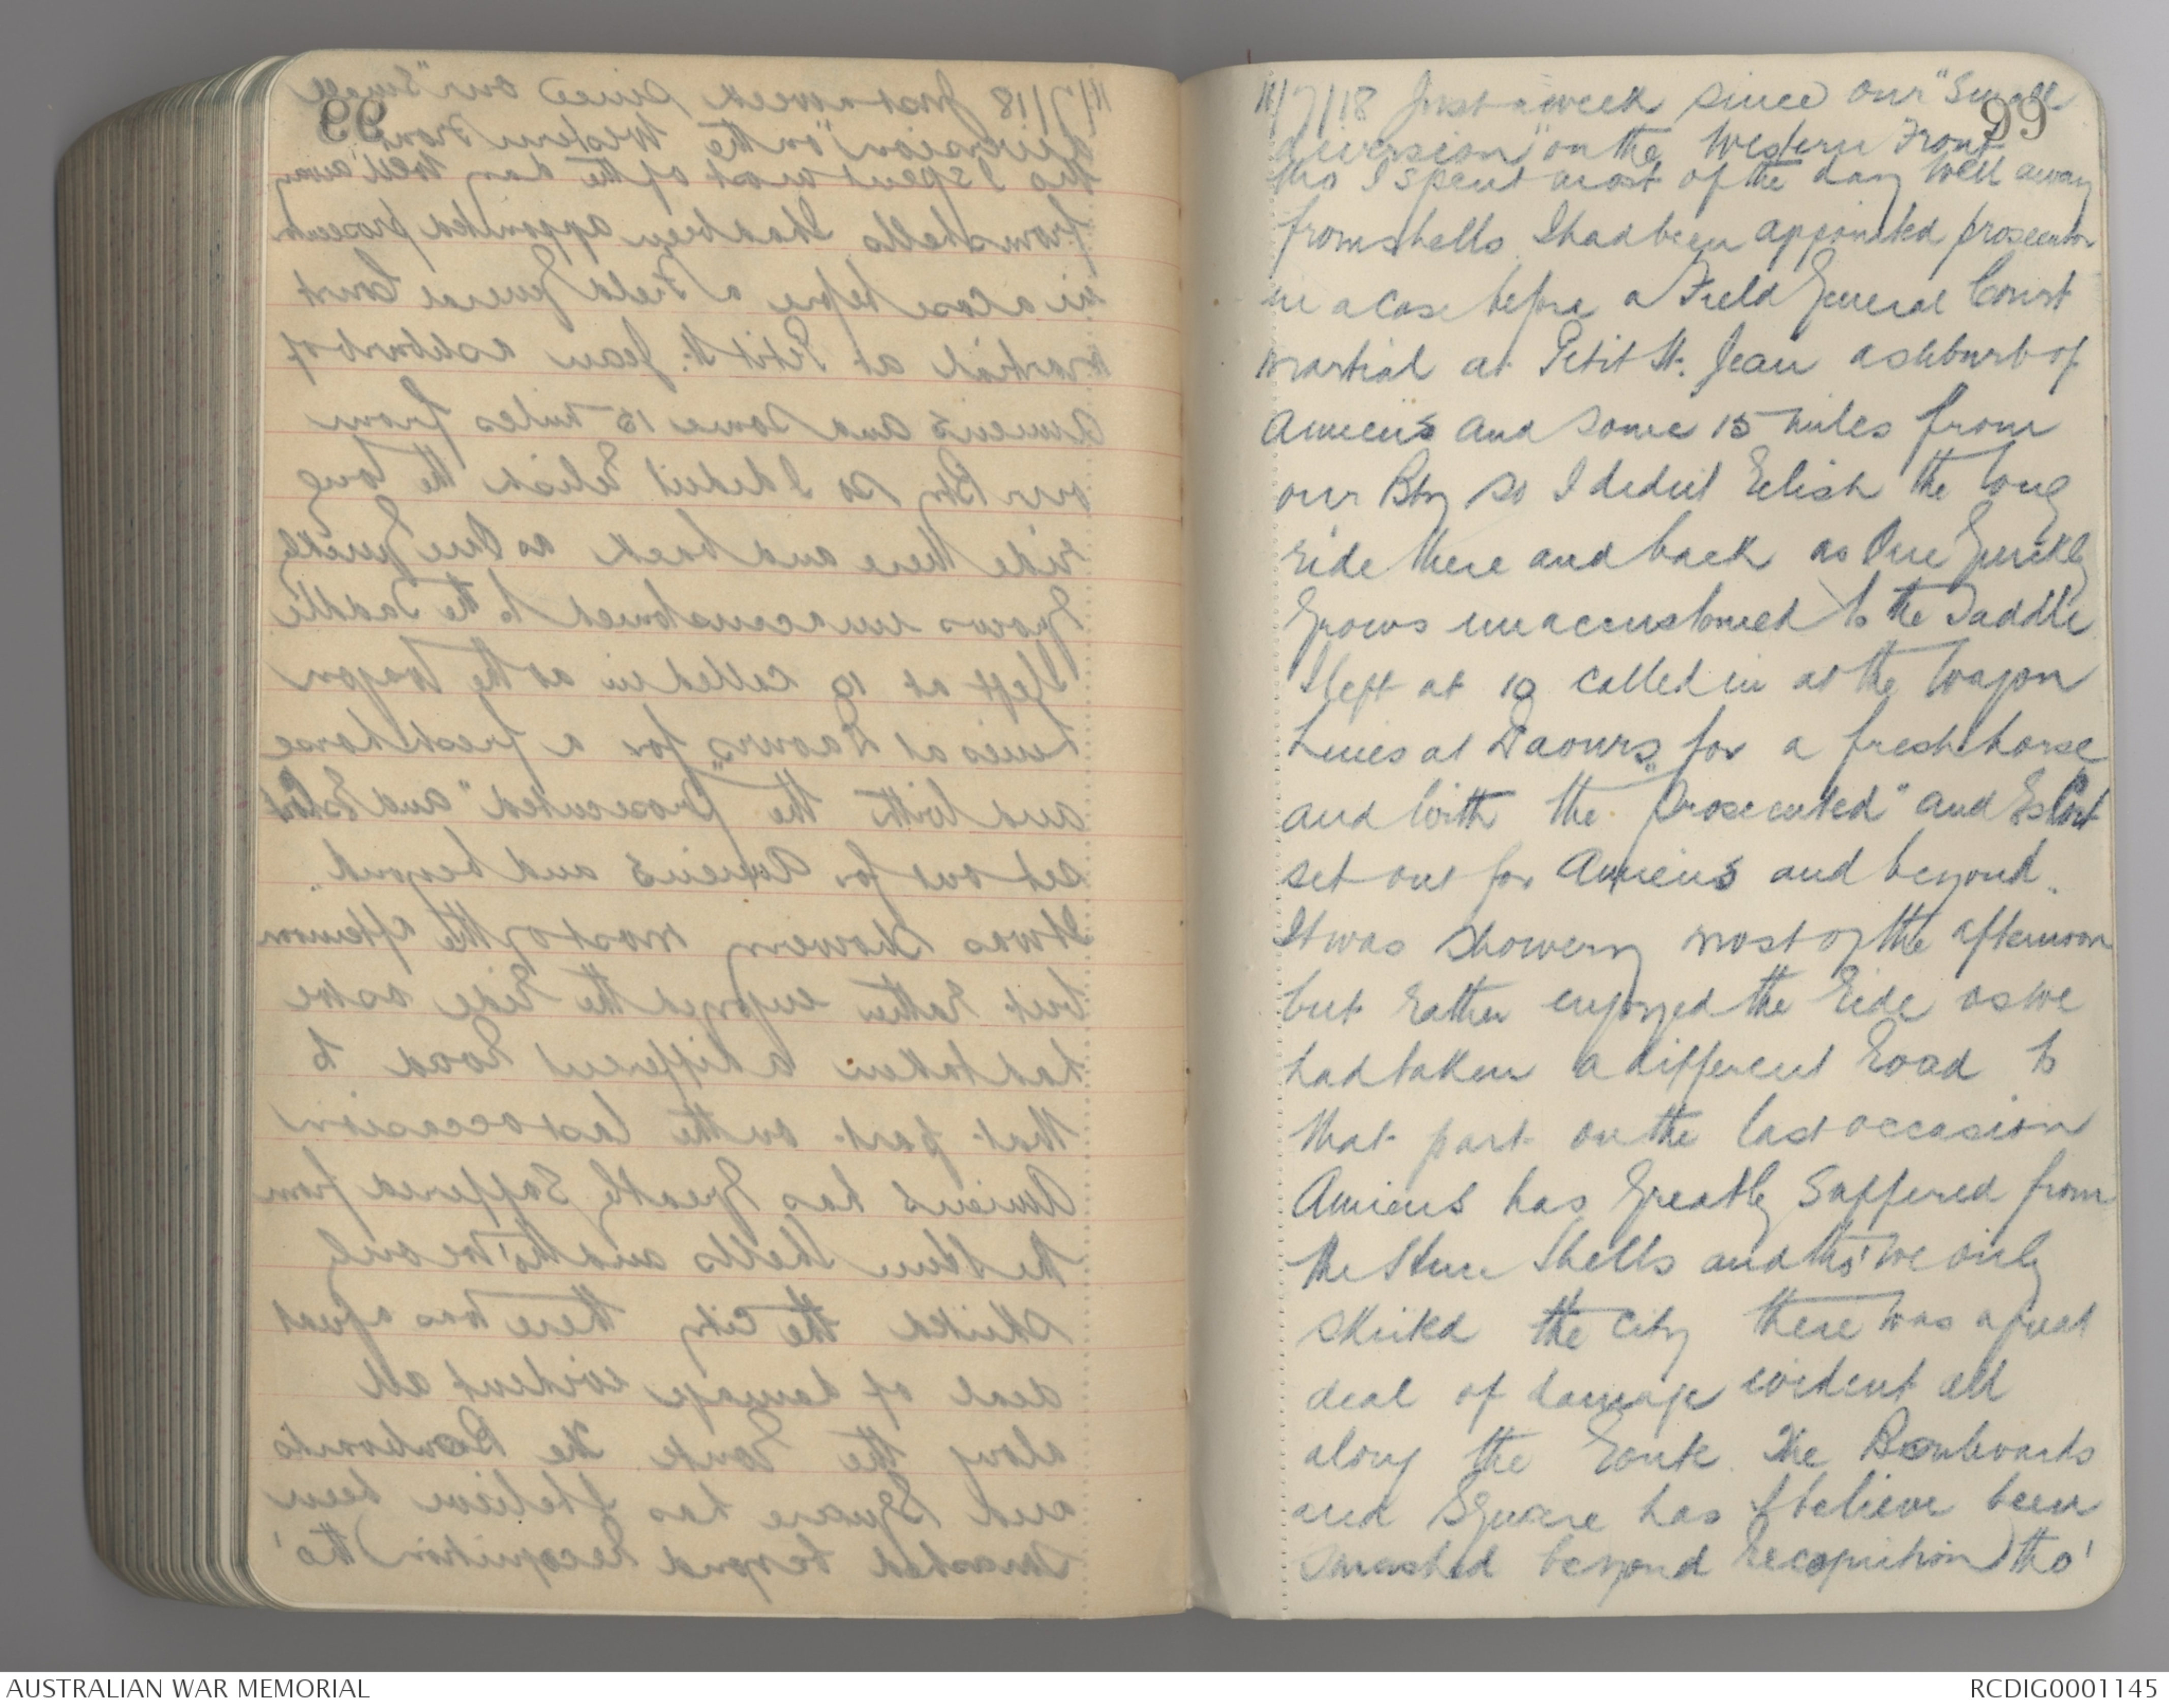 99
11/7/18 Just a week since our "Small
diversion" on the Western Front
tho I spent most of the day well away
from shells. I had been appointed prosecutor
in a case before a Field General Court
Martial at Petit St. Jean a suburb of
Amiens and some 15 miles from
our Bty so I didnt Relish the long
ride there and back as One Quickly
Grows unaccustomed to the Saddle
I left at 10 called in at the Wagon
Lines at Daours for a fresh horse
and with the "Prosecuted" and Escort
set out for Amiens and beyond.
It was Showery most of the afternoon
but Rather enjoyed the Ride as we
had taken a different Road to
that part on the last occasion
Amiens has Greatly Suffered from
the Hun Shells and tho' we only
skirted the City there was a great
deal of damage evident all
along the Route. The Boulevards
and Square has I believe been
smashed beyond Recognition) tho'
AUSTRALIAN WAR MEMORIAL
RCDIG0001145